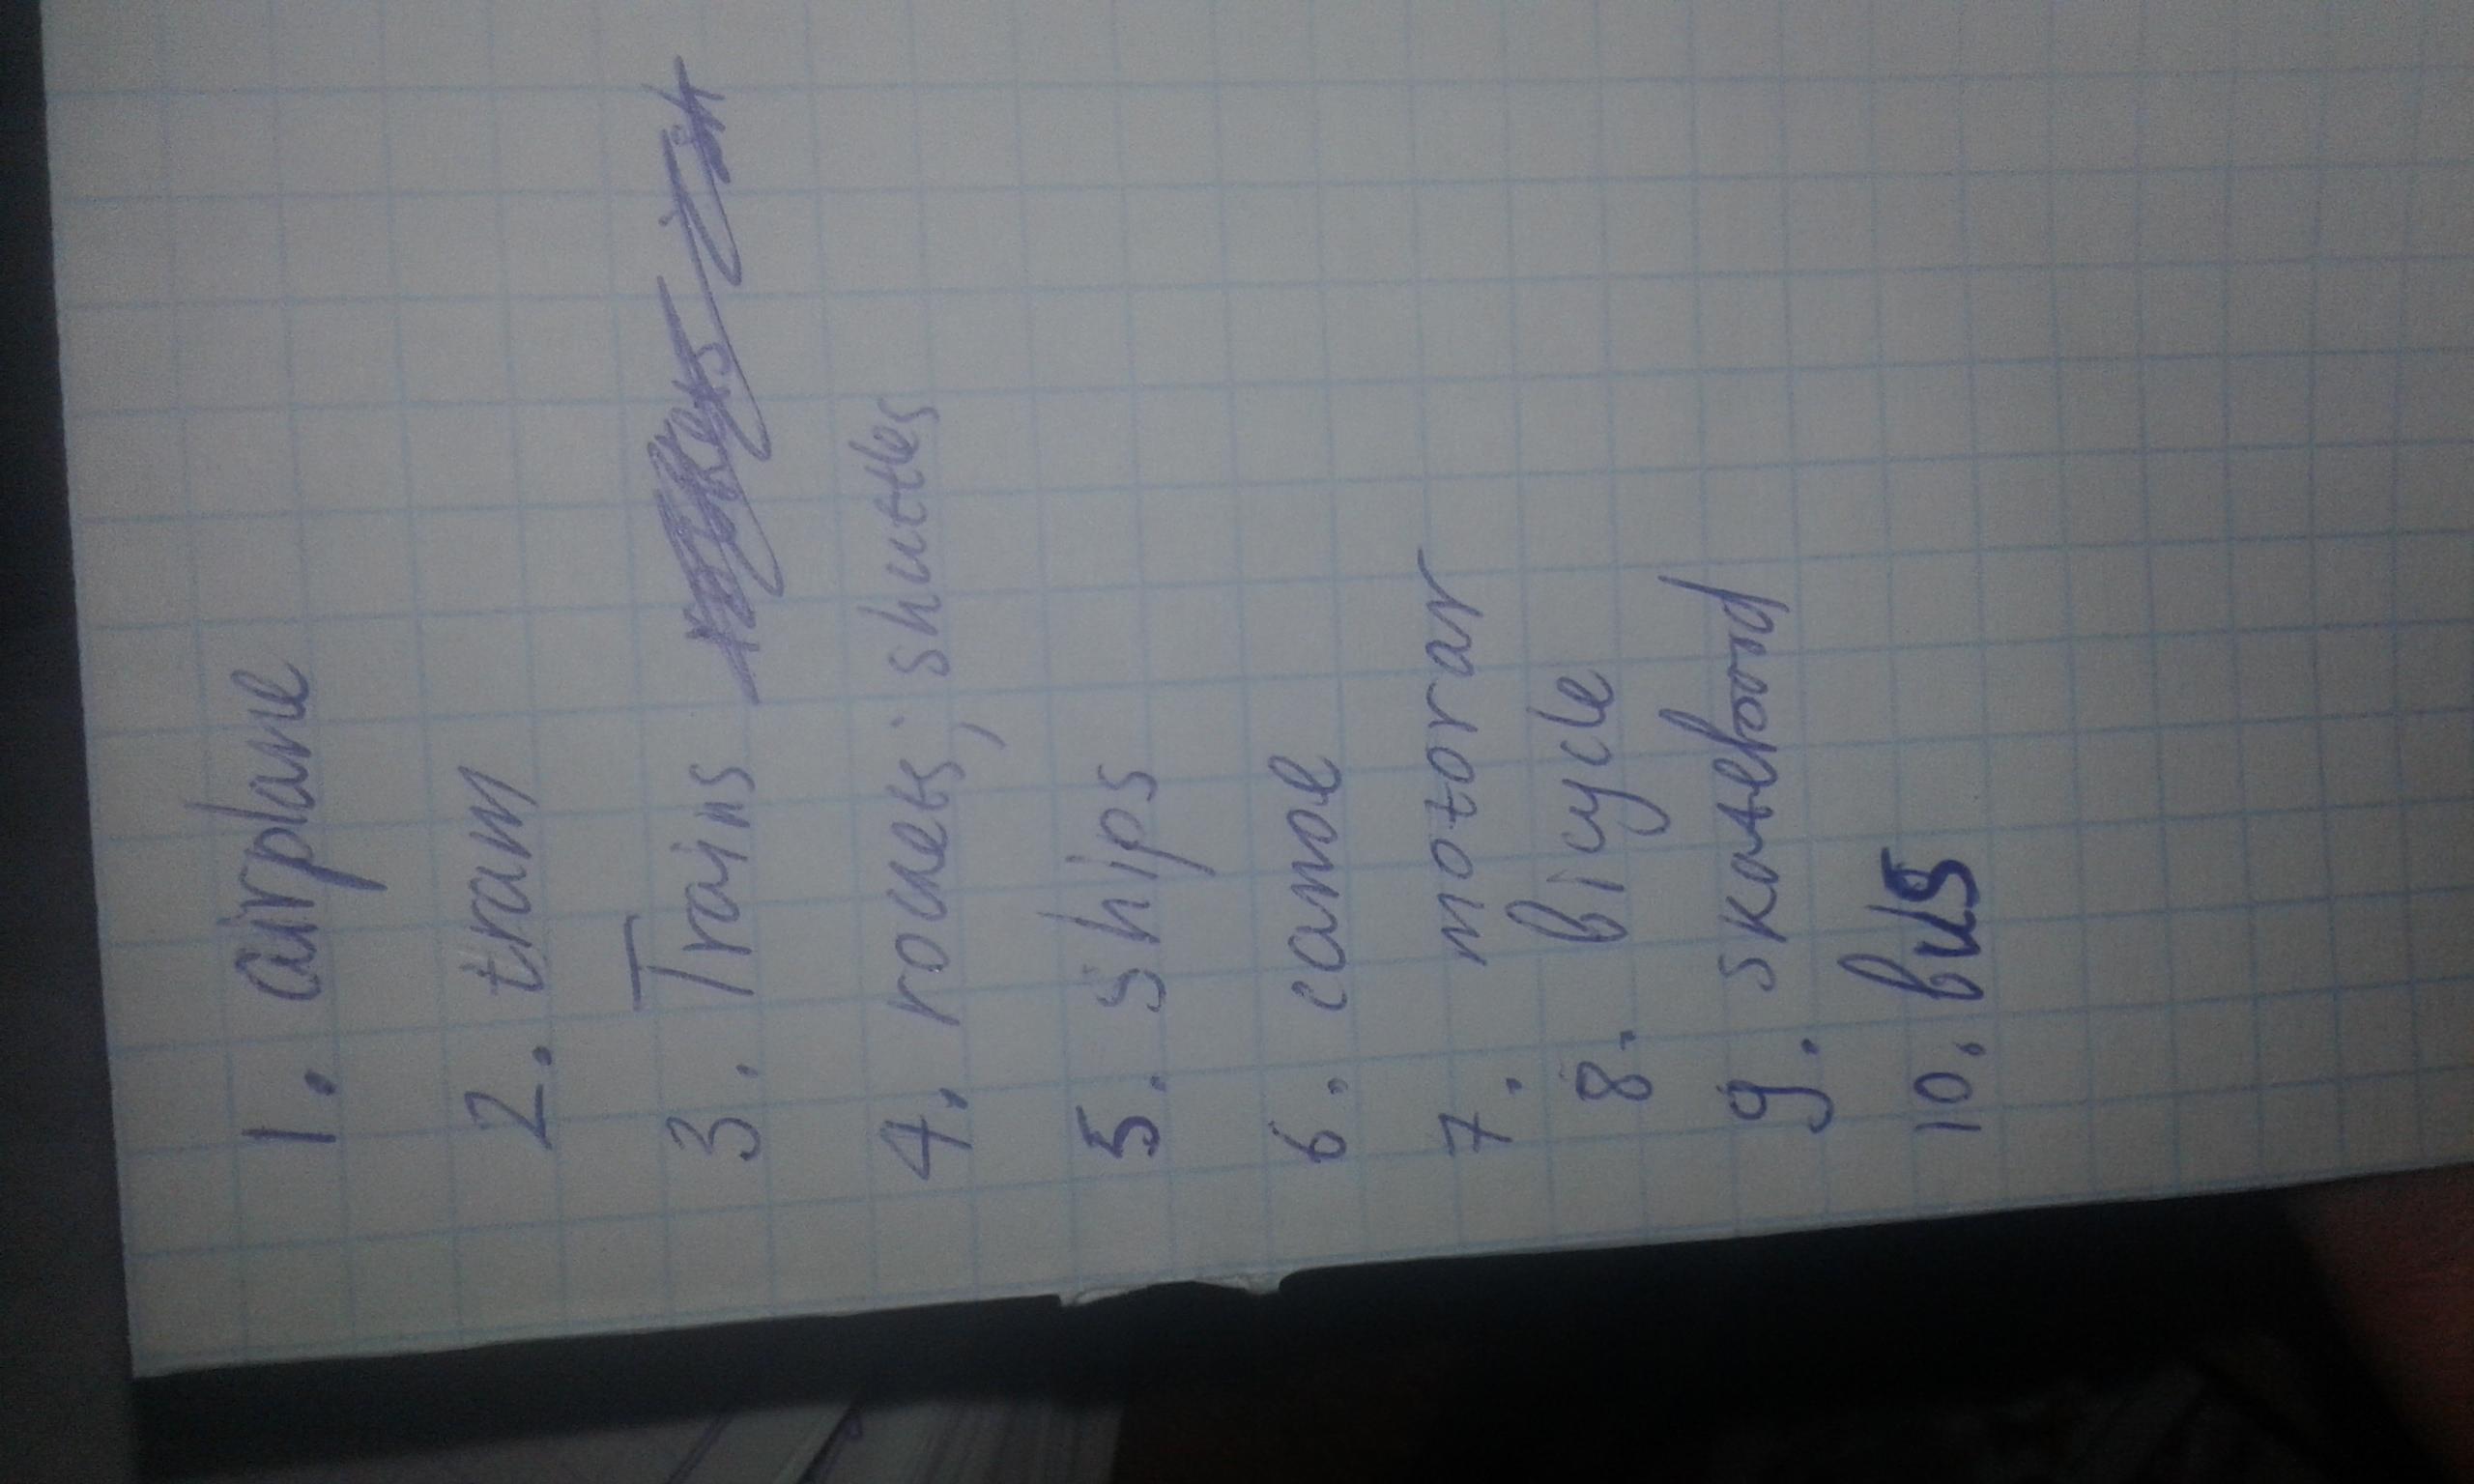 1. airplane
2. tram
3. Trains
4. rockets; shuttles
5. ships
6. canoe
7. motorar
8. bicycle
9. skateboord
10. bus